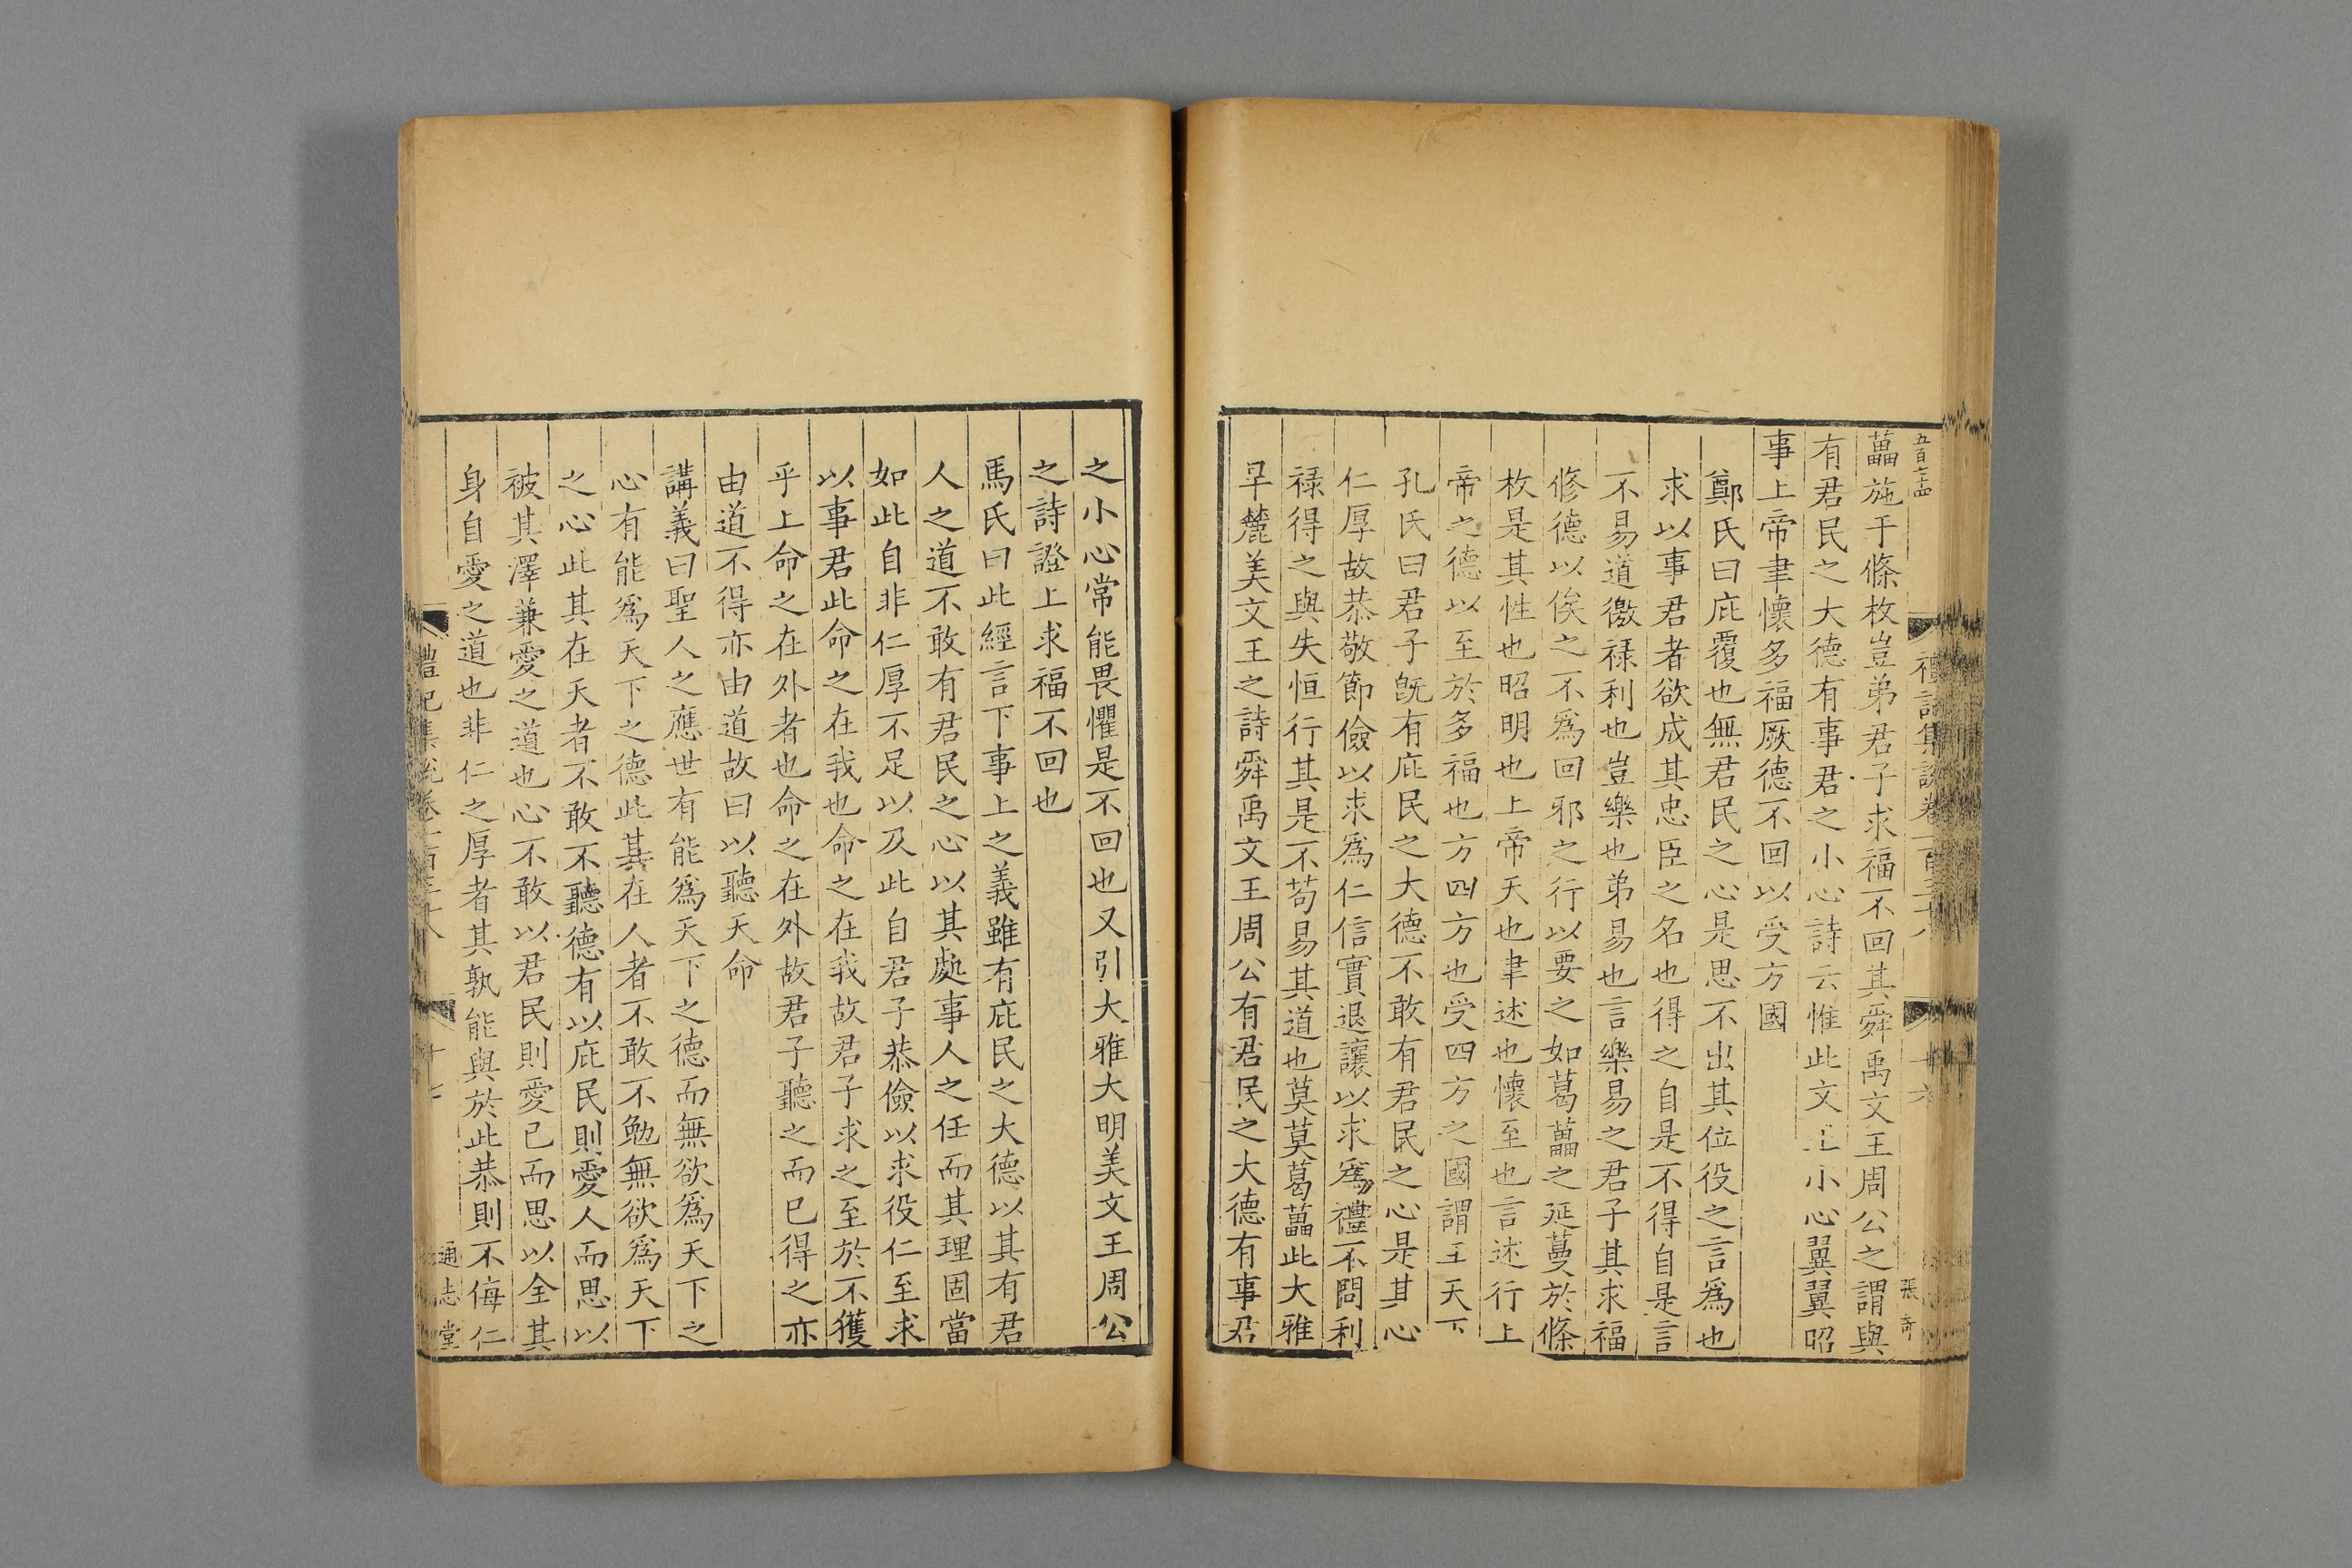 五百七十四
禮記集說卷一百三十八
十六
張奇
藟施于條枚豈弟君子求福不回其舜禹文王周公之謂與
有君民之大德有事君之小心詩云惟此文王小心翼翼昭
事上帝聿懷多福厥德不回以受方國
鄭氏曰庇覆也無君民之心是思不出其位役之言為也
求以事君者欲成其忠臣之名也得之自是不得自是言
不易道徼祿利也豈樂也弟易也言樂易之君子其求福
修德以俟之不爲回邪之行以要之如葛藟之延蔓於條
枚是其性也昭明也上帝天也聿述也懷至也言述行上
帝之德以至於多福也方四方也受四方之國謂王天下
孔氏曰君子旣有庇民之大德不敢有君民之心是其心
仁厚故恭敬節儉以求爲仁信實退讓以求爲禮不問利
祿得之與失恒行其是不苟易其道也莫莫葛藟此大雅
旱麓美文王之詩舜禹文王周公有君民之大德有事君
之小心常能畏懼是不回也又引大雅大明美文王周公
之詩證上求福不回也
馬氏曰此經言下事上之義雖有庇民之大德以其有君
人之道不敢有君民之心以其處事人之任而其理固當
如此自非仁厚不足以及此自君子恭儉以求役仁至求
以事君此命之在我也命之在我故君子求之至於不獲
乎上命之在外者也命之在外故君子聽之而已得之亦
由道不得亦由道故曰以聽天命
講義曰聖人之應世有能爲天下之德而無欲爲天下之
心有能爲天下之德此其在人者不敢不勉無欲爲天下
之心此其在天者不敢不聽德有以庇民則愛人而思以
被其澤兼愛之道也心不敢以君民則愛已而思以全其
身自愛之道也非仁之厚者其孰能與於此恭則不侮仁
禮記集說卷一百三十八
十七
通志堂